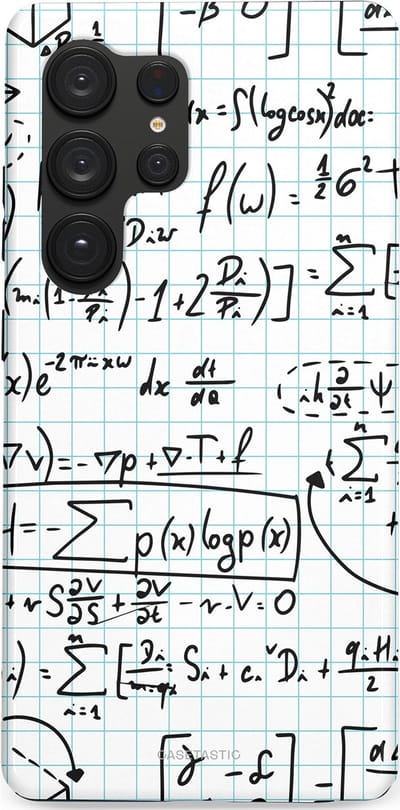 -β 0
dx = ∫(logcosx)²dx:
f(ω) = 1/2 6² +
Dᵢw
(mᵢ(1- /Pᵢ)-1+2Dᵢ/Pᵢ)] = Σⁿᵢ₌₁[
x)e^-2πixw dx dt/dQ iħ ∂/∂t Ψ
∇v)=-∇p+∇·T+f Σⁿᵢ₌₁
H=-Σp(x)logp(x)
+ r S ∂V/∂S + ∂V/∂t - r·V=0
i) = Σⁿᵢ₌₁[Dᵢ/m·qᵢ Sᵢ + cᵢ Dᵢ + qᵢHᵢ/2
CASETASTIC